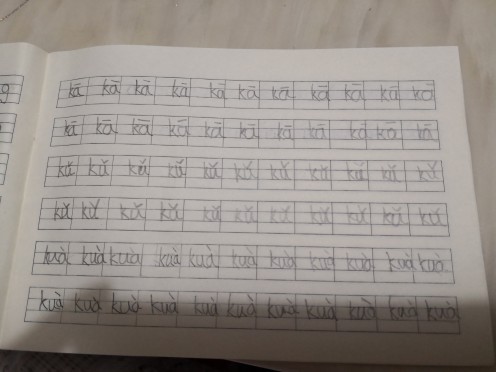 kā kā kā kā kā kā kā kā kā kā kā
kā kā kā kā kā kā kā kā kā kā kā
kǔ kǔ kǔ kǔ kǔ kǔ kǔ kǔ kǔ kǔ kǔ
kǔ kǔ kǔ kǔ kǔ kǔ kǔ kǔ kǔ kǔ kǔ
kuà kuà kuà kuà kuà kuà kuà kuà kuà kuà kuà
kuà kuà kuà kuà kuà kuà kuà kuà kuà kuà kuà